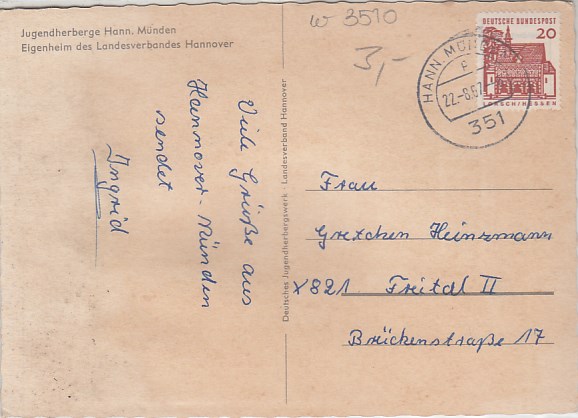 Jugendherberge Hann. Münden
Eigenheim des Landesverbandes Hannover
w 3510
3,-
DEUTSCHE BUNDESPOST
20
LORSCH/HESSEN
HANN. MÜNDEN
22.-8.67
351
Viele Grüße aus
Hannover-Münden
sendet
Ingrid
Deutsches Jugendherbergswerk · Landesverband Hannover
Frau
Gretchen Heinzmann
X821 Freital II
Brückenstraße 17